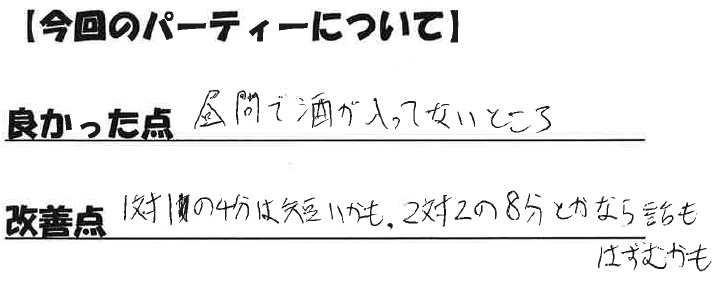 【今回のパーティーについて】
良かった点 昼間で酒が入ってないところ
改善点 1対1の4分は短いかも、2対2の8分とかなら話も
はずむかも